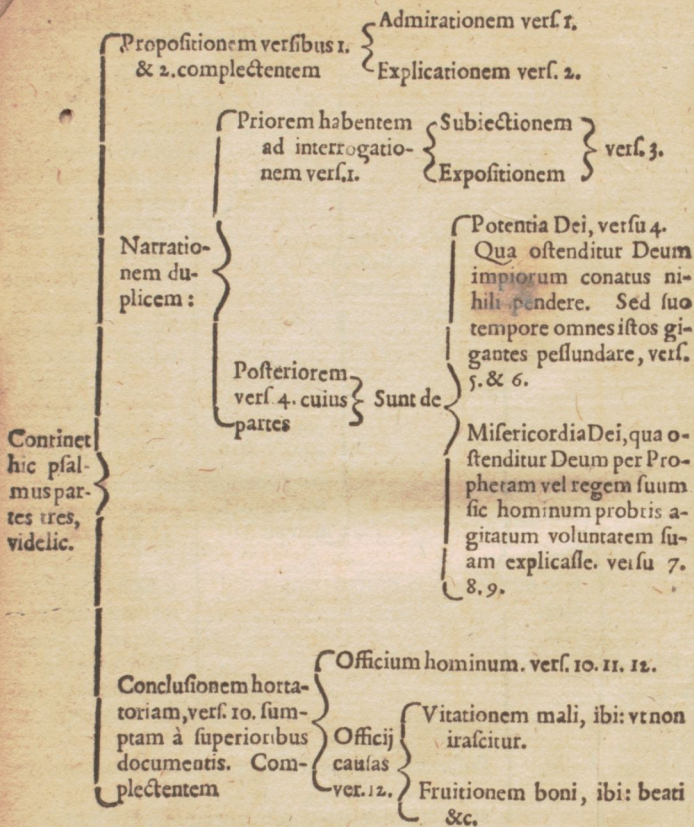 Admirationem verſ. 1.
Propoſitionem verſibus 1.
& 2. complectentem
Explicationem verſ. 2.
Priorem habentem
ad interrogatio-
nem verſ. 1.
Subiectionem
Expoſitionem
verſ. 3.
Narratio-
nem du-
plicem :
Poſteriorem
verſ 4. cuius
partes
Sunt de
Potentia Dei, verſu 4.
Qua oſtenditur Deum
impiorum conatus ni-
hili pendere. Sed ſuo
tempore omnes iſtos gi-
gantes peſſundare, verſ.
5. & 6.
Miſericordia Dei, qua o-
ſtenditur Deum per Pro-
phetam vel regem ſuum
ſic hominum probris a-
gitatum voluntatem ſu-
am explicaſſe. verſu 7.
8. 9.
Continet
hic pſal-
mus par-
tes tres,
videlic.
Concluſionem horta-
toriam, verſ. 10. ſum-
ptam à ſuperioribus
documentis. Com-
plectentem
Officium hominum. verſ. 10. 11. 12.
Officij
cauſas
ver. 12.
Vitationem mali, ibi: vt non
iraſcitur.
Fruitionem boni, ibi: beati
&c.